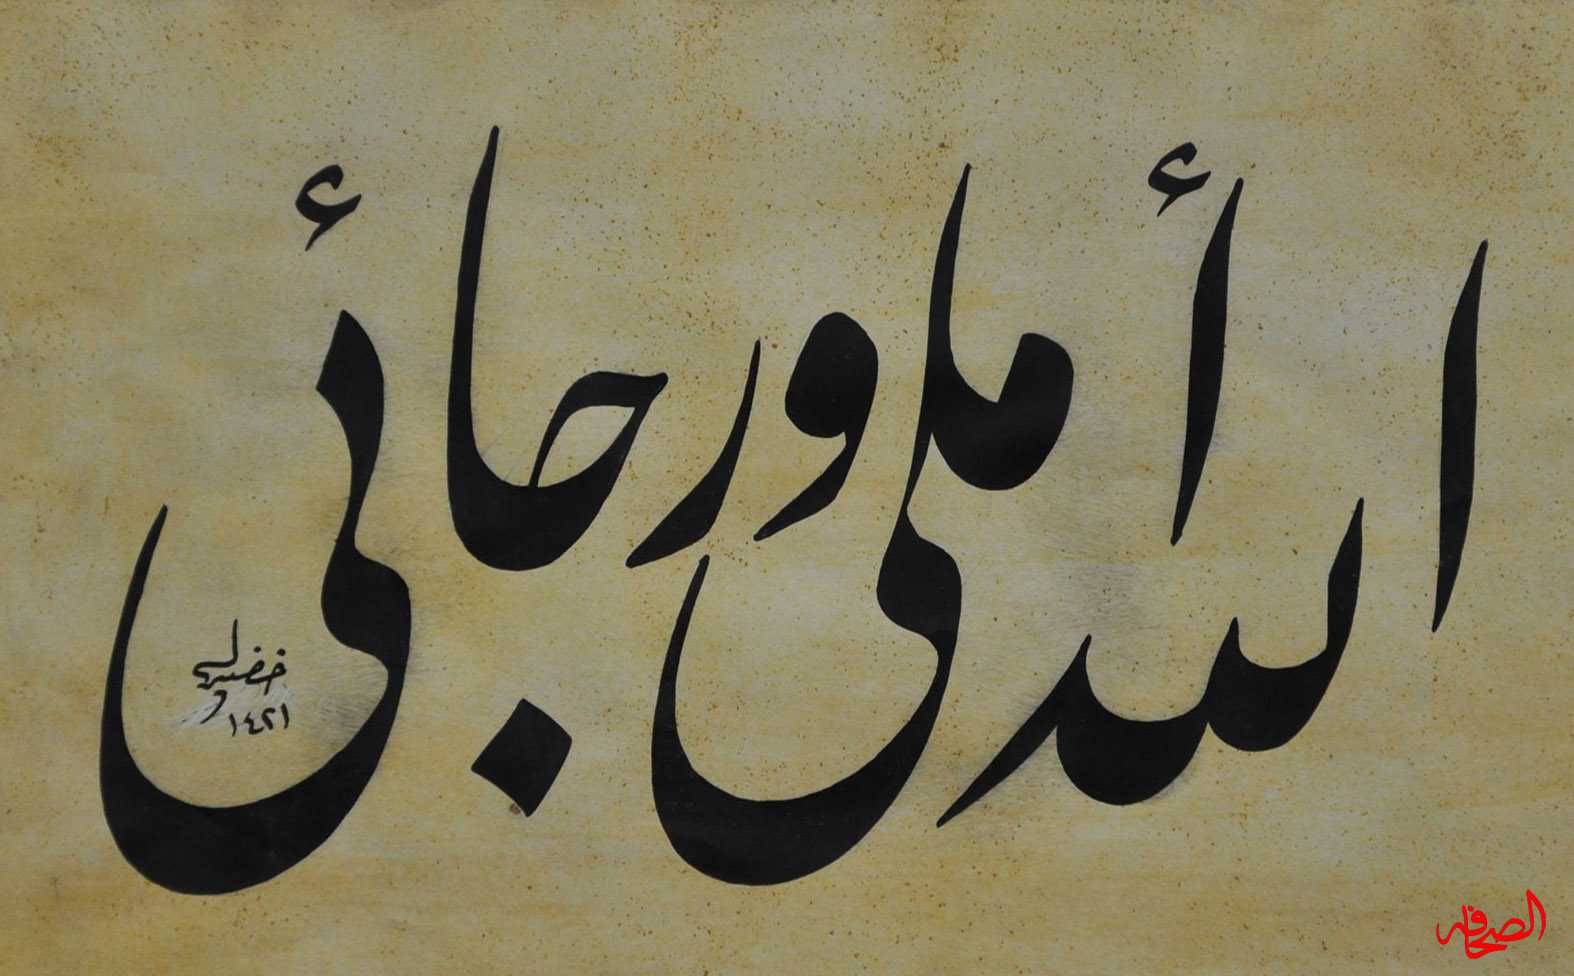 الله أملي ورجائي
خضير
١٤٢١
الصحافة